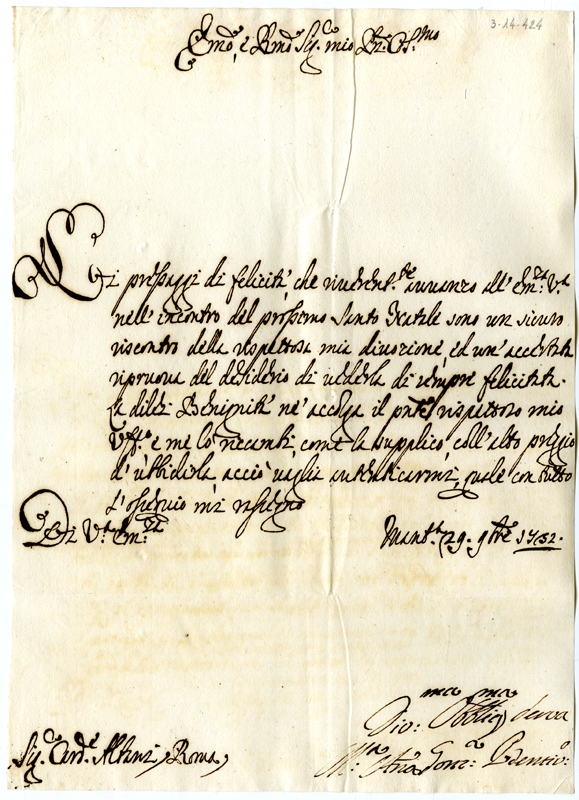 3-14-424
Emo, e Rmo Sig.r mio P̃ne Oss.mo
Li presaggi di felicità, che riverent.te avvanzo all' Em.za V.a
nell' incontro del prossimo Santo Natale sono un sicuro
riscontro della rispettosa mia divozione, ed un' accertata
ripruova del desiderio di vederla di sempre felicitata.
La di lei Benignità ne' accolga il pnte rispettoso mio
Uff.o e me lo ricambi, come la supplico coll' alto preggio
d' ubbidirla acciò vaglia autenticarmi, quale con tutto
l' ossequio mi rassegno
Di V.a Em.za
Mant.a 29. 9bre 1732.
Div.ma Obblig.ma serva
Sig.r Card.e Albani, Roma,
M.a Anna Gonz.a